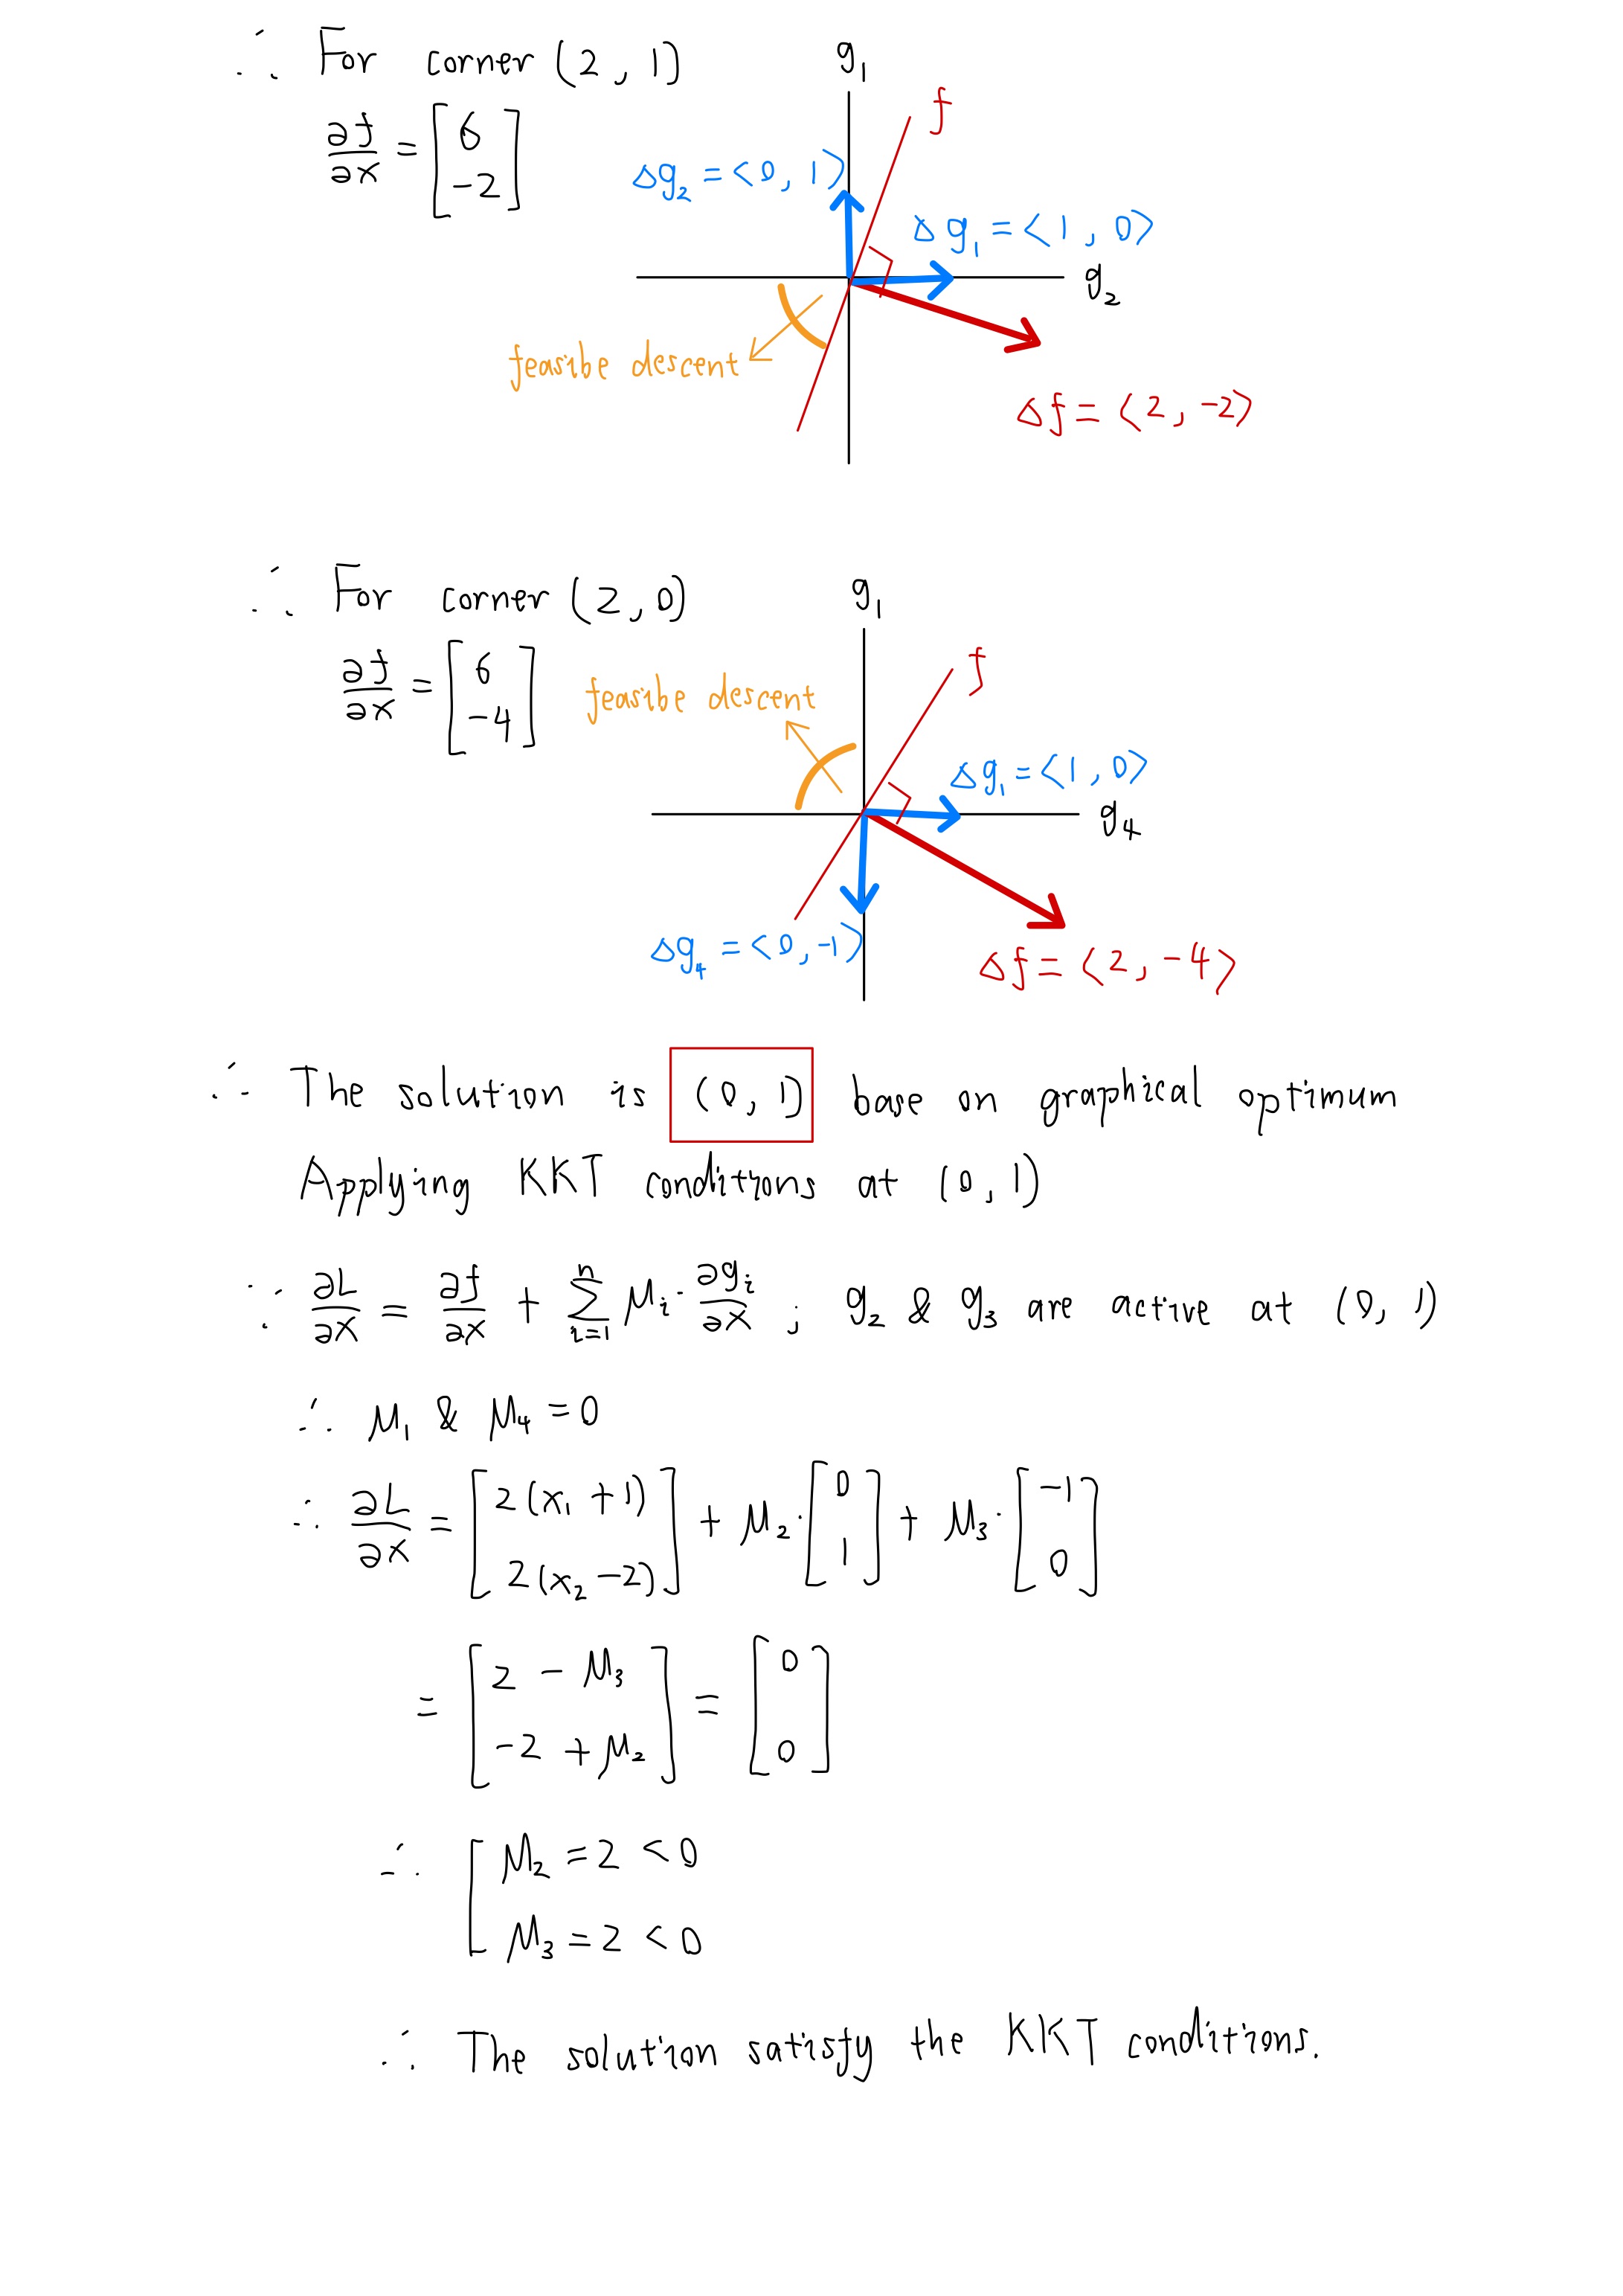 ∴ For corner (2, 1)
∂f/∂x = [6 -2]
g₁
f
Δg₂ = <0, 1>
Δg₁ = <1, 0>
g₂
feasible descent
Δf = <2, -2>
∴ For corner (2, 0)
∂f/∂x = [6 -4]
g₁
f
feasible descent
Δg₁ = <1, 0>
g₄
Δg₄ = <0, -1>
Δf = <2, -4>
∴ The solution is (0, 1) base on graphical optimum
Applying KKT conditions at (0, 1)
∵ ∂L/∂x = ∂f/∂x + Σⁿᵢ₌₁ μᵢ · ∂gᵢ/∂x ; g₂ & g₃ are active at (0, 1)
∴ μ₁ & μ₄ = 0
∴ ∂L/∂x = [2(x₁ + 1) 2(x₂ - 2)] + μ₂ · [0 1] + μ₃ · [-1 0]
= [2 - μ₃ -2 + μ₂] = [0 0]
∴ [μ₂ = 2 < 0
μ₃ = 2 < 0
∴ The solution satisfy the KKT conditions.